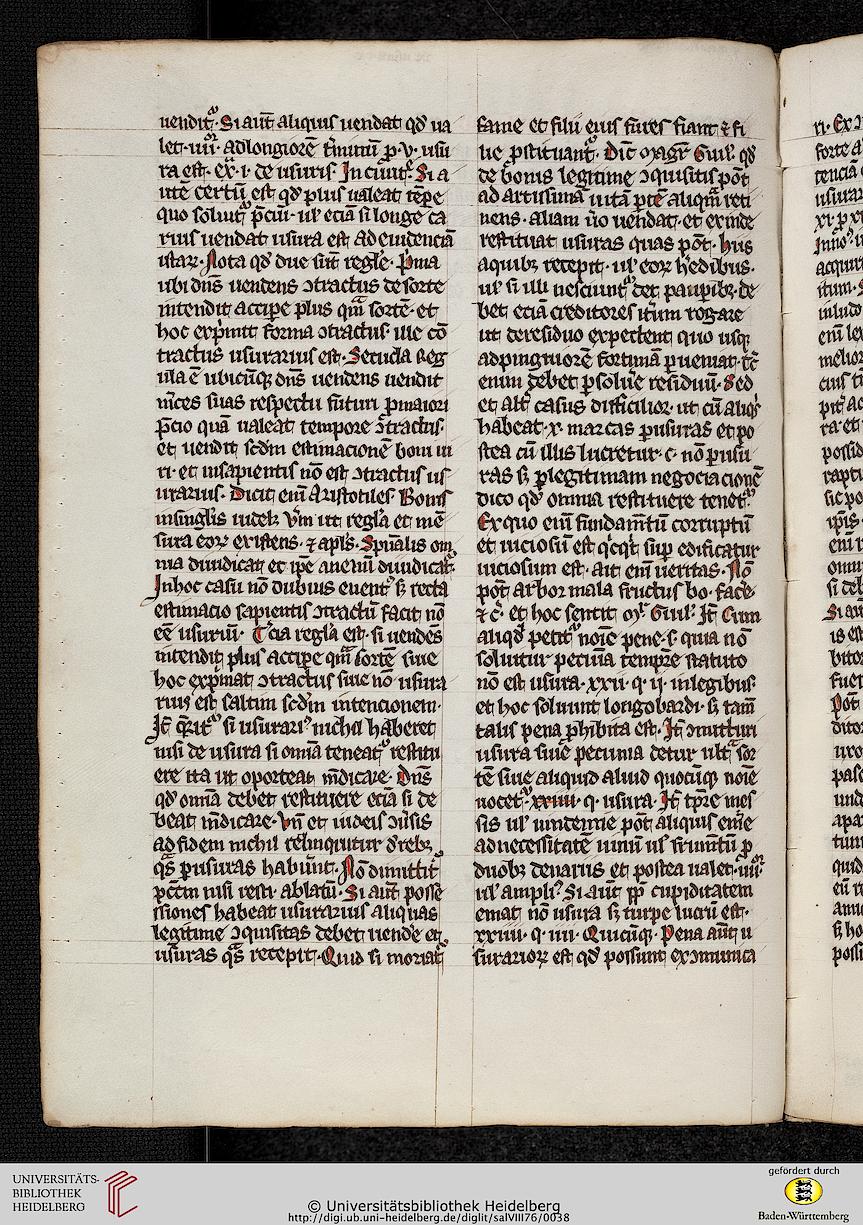 uendit᷑. Si aut̄ aliquis uendat qd̕ ua
let. iiii. ad longiorē t̄minū p̲. v. usu
ra est. ex̄. i. de usuris. In ciuit̕. Si a
utē certū est qd̕ plus ualeat tēpe
quo soluit᷑ p̄ciū. ul̕ eciā si longe ca
rius uendat usura est. Ad euidenciā
istaꝝ. Nota qd̕ due sūt regl̕e. P̄ma
ubi dn̄s uendens ꝯtractus de sorte
intendit accipe plus qm̄ sortē. et
hoc exp̄mit forma ꝯtractus. ille cō
tractus usurarius est. Secūda Reg
ula ē ubicūqꝫ dn̄s uendens uendit
m̄ces suas respectu futuri p̲ maiori
p̄cio quā ualeat tempore ꝯtractus.
et uendit scd̕m estimacionē boni ui
ri. et in sapientis nō est ꝯtractus us
urarius. Dicit eni Aristotiles Bonus
in singl̕is iudex v̄m ut regl̕a et mē
sura eoꝝ existens. ⁊ apl̕s. Spūalis om
nia diiudicat et ip̄e a nemī diiudicat᷑.
In hoc casu nō dubius euent᷒ sꝫ recta
estimacio sapientis ꝯtractū facit nō
eē usurūi. T̄cia regl̕a est. si uendēs
intendit plus accipe qm̄ sortē siue
hoc exp̄mat ꝯtractus siue nō usura
rius est saltim scd̕m intencionem.
It̄ q̄rit᷑ si usurari᷒ nichil haberet
nisi de usura si omīa teneat᷑ restitu
ere ita ut oporteat mēdicare. Dn̄s
qd̕ omīa debet restituere eciā si de
beat mēdicare. Vn̄ et iudeis ꝯūsis
ad fidem nichil reli̅nquitur d̕ rebꝫ
qᷤ p̲ usuras habūnt. Nō dimittit᷑
pctm̄ nisi resti. ablatū. Si aut̄ posse
ssiones habeat usurarius aliquas
legitime ꝯquisitas debet uende et
usuras qᷤ recepit. Quid si moriat᷑
fame et filii eius fures fiant ⁊ fi
lie p̲stituant᷑. Dic̄ maḡr Guil̕. qd̕
de bonis legitime ꝯquisitis pōt
ad artissimā uitā ptē aliqm̄ reti
nens. aliam ūo uendat. et exinde
restituat usuras quas pōt. hiis
a quibꝫ recepit. ul̕ eoꝝ h̄edibus.
ul̕ si illi nesciunt᷑ det paup̲ibꝫ. de
bet eciā creditores it̄um rogare
ut de residuo expectent quo usqꝫ
ad pinguiorē fortunā p̲ueniat. tc̄
enim debet p̲solue residuū. Sed
et alt᷑ casus difficilior. ut cū aliqᷤ
habeat. x. marcas p̲ usuras et po
stea cū illis lucretur. c. nō p̲ usu
ras sꝫ p̲ legitimam negociacionē
dico qd̕ omnia restituere tenet᷑.
Ex quo eni fundam̄tū corruptū
et uiciosū est qͥcqͥd sup̲ edificatur
uiciosum est. ait eni ueritas. Nō
pōt arbor mala fructus bo. face.
⁊c̄. et hoc sentit mͬ. Guil̕. It̄ Cum
aliqd̕ petit᷑ noīe pene. s. quia nō
soluitur pecunia tempre statuto
nō est usura. xxii. q. ii. in legibus.
et hoc soluunt longobardi. sꝫ tam̄
talis pena p̲hibita est. It̄ ꝯmittitur
usura siue pecunia detur ult̄ sor
tē siue aliquid aliud quocūqꝫ noīe
uocet᷑. xxiiii. q. usura. It̄ tpr̄e mes
sis ul̕ uindemie pōt aliquis em̄e
ad necessitatē uinū ul̕ frum̄tū p̲
duobꝫ denariis et postea ualet. iiii.
ul̕ ampli᷒. Si aut̄ pp̄ cupiditatem
emat nō usura sꝫ turpe lucrū est.
xxiiii. q. iiii. Quicūqꝫ. Pena aut̄ u
surarioꝝ est qd̕ possunt exꝯmunica
UNIVERSITÄTS-
BIBLIOTHEK
HEIDELBERG
© Universitätsbibliothek Heidelberg
http://digi.ub.uni-heidelberg.de/diglit/salVIII76/0038
gefördert durch
Baden-Württemberg